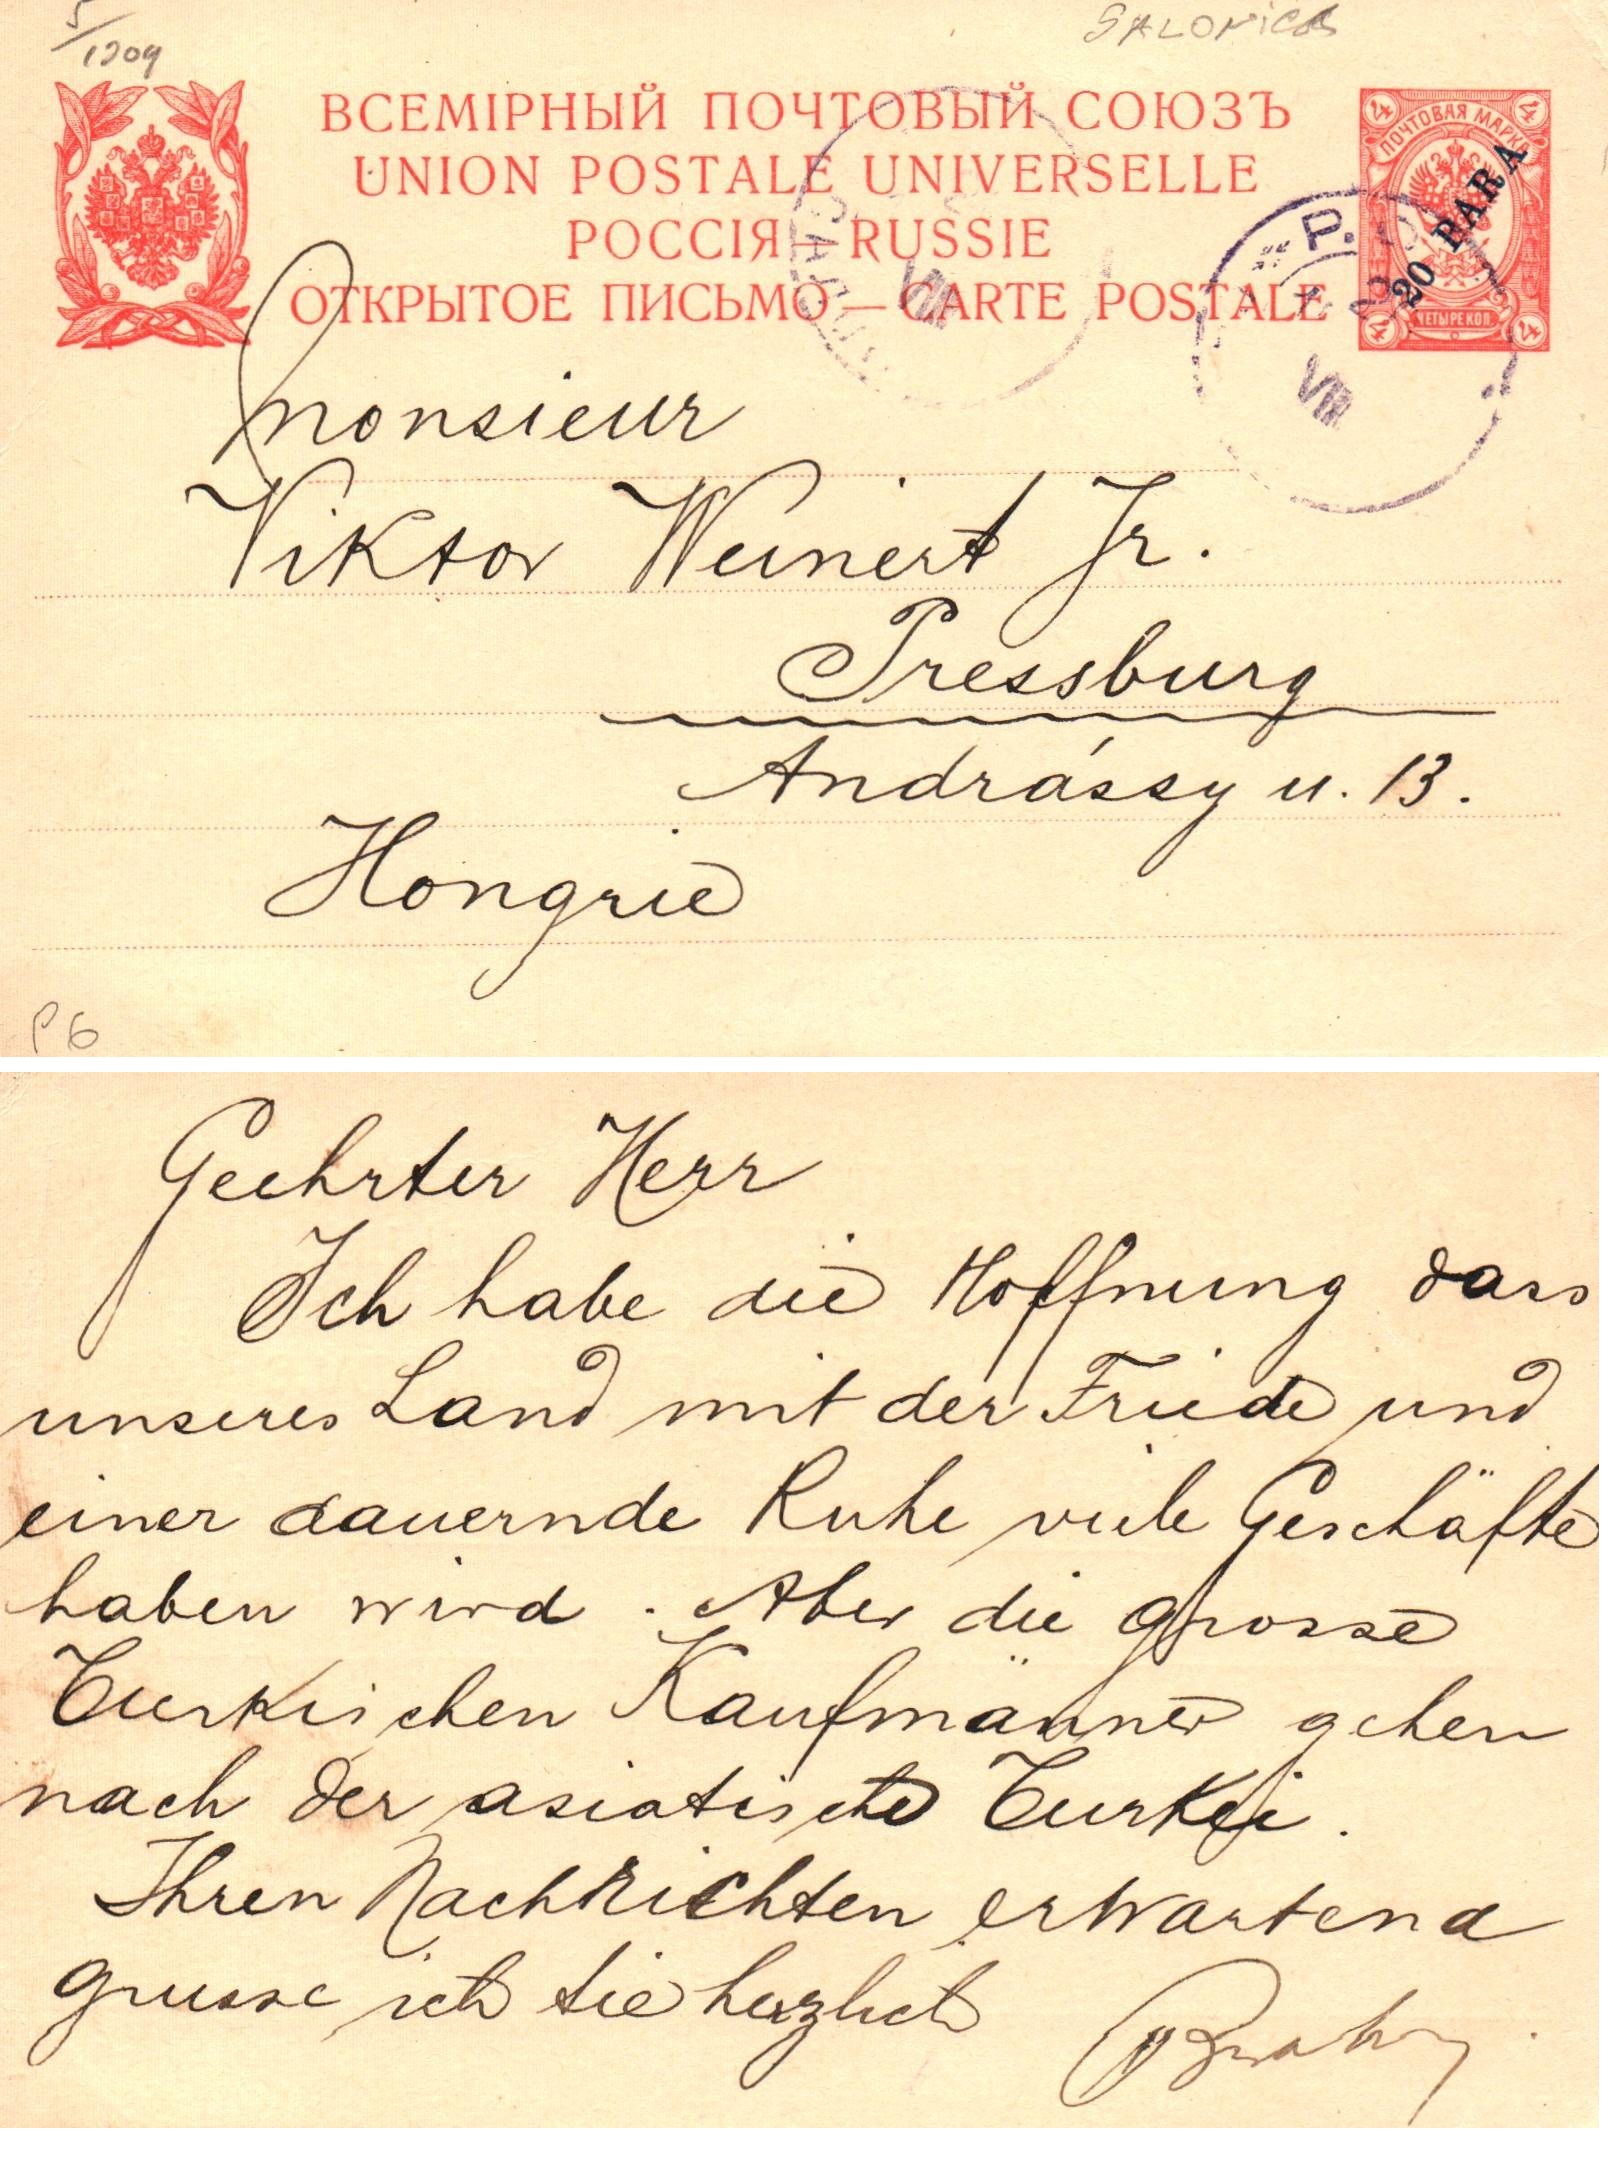 5/1909
SALONICA
ВСЕМІРНЫЙ ПОЧТОВЫЙ СОЮЗЪ
UNION POSTALE UNIVERSELLE
РОССІЯ — RUSSIE
ОТКРЫТОЕ ПИСЬМО — CARTE POSTALE
4 4
ПОЧТОВАЯ МАРКА
20 PARA
ЧЕТЫРЕ КОП.
4 4
VIII
Р.
VIII
Monsieur
Viktor Weinert Jr.
Pressburg
Andrássy u. 13.
Hongrie
P6
Geehrter Herr
Ich habe die Hoffnung dass
unseres Land mit der Friede und
einer dauernde Ruhe viele Geschäfte
haben wird. Aber die grosse
Turkischen Kaufmänner gehen
nach der asiatische Turkei.
Ihren Nachrichten erwartend
grusse ich sie herzlich